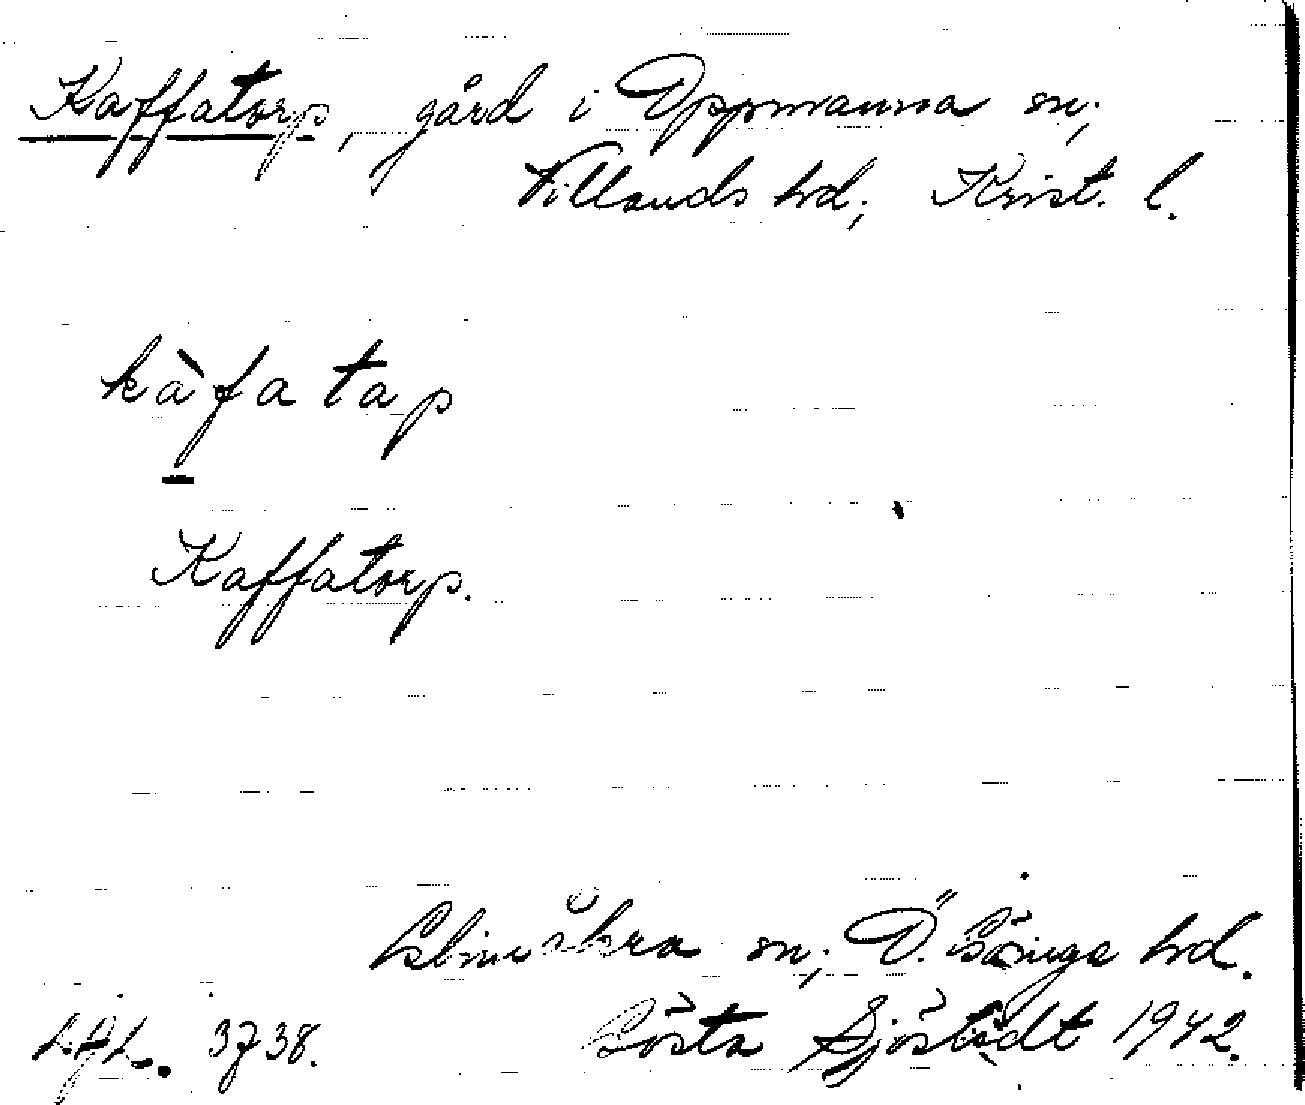 Kaffatorp, gård i Oppmanna sn;
Villands hd; Krist. l.
kàfatap
Kaffatorp.
Glimåkra sn; Ö. Göinge hd.
L.A.L. 3738. Gösta Sjöstedt 1942.